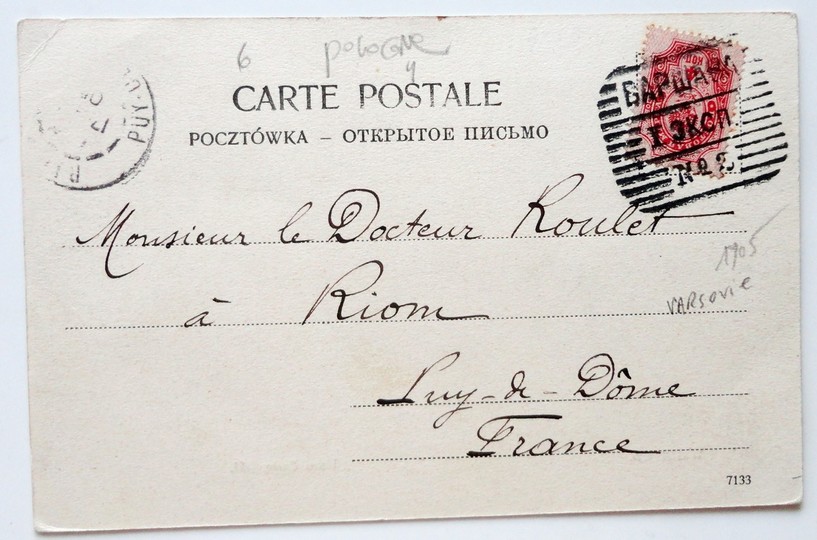 6 POLOGNE
4
CARTE POSTALE
POCZTÓWKA – ОТКРЫТОЕ ПИСЬМО
ВАРШАВА
I ЭКСП.
№ 2
PUY
Monsieur le Docteur Roulet
à Riom
1905
VARSOVIE
Puy-de-Dôme
France
7133